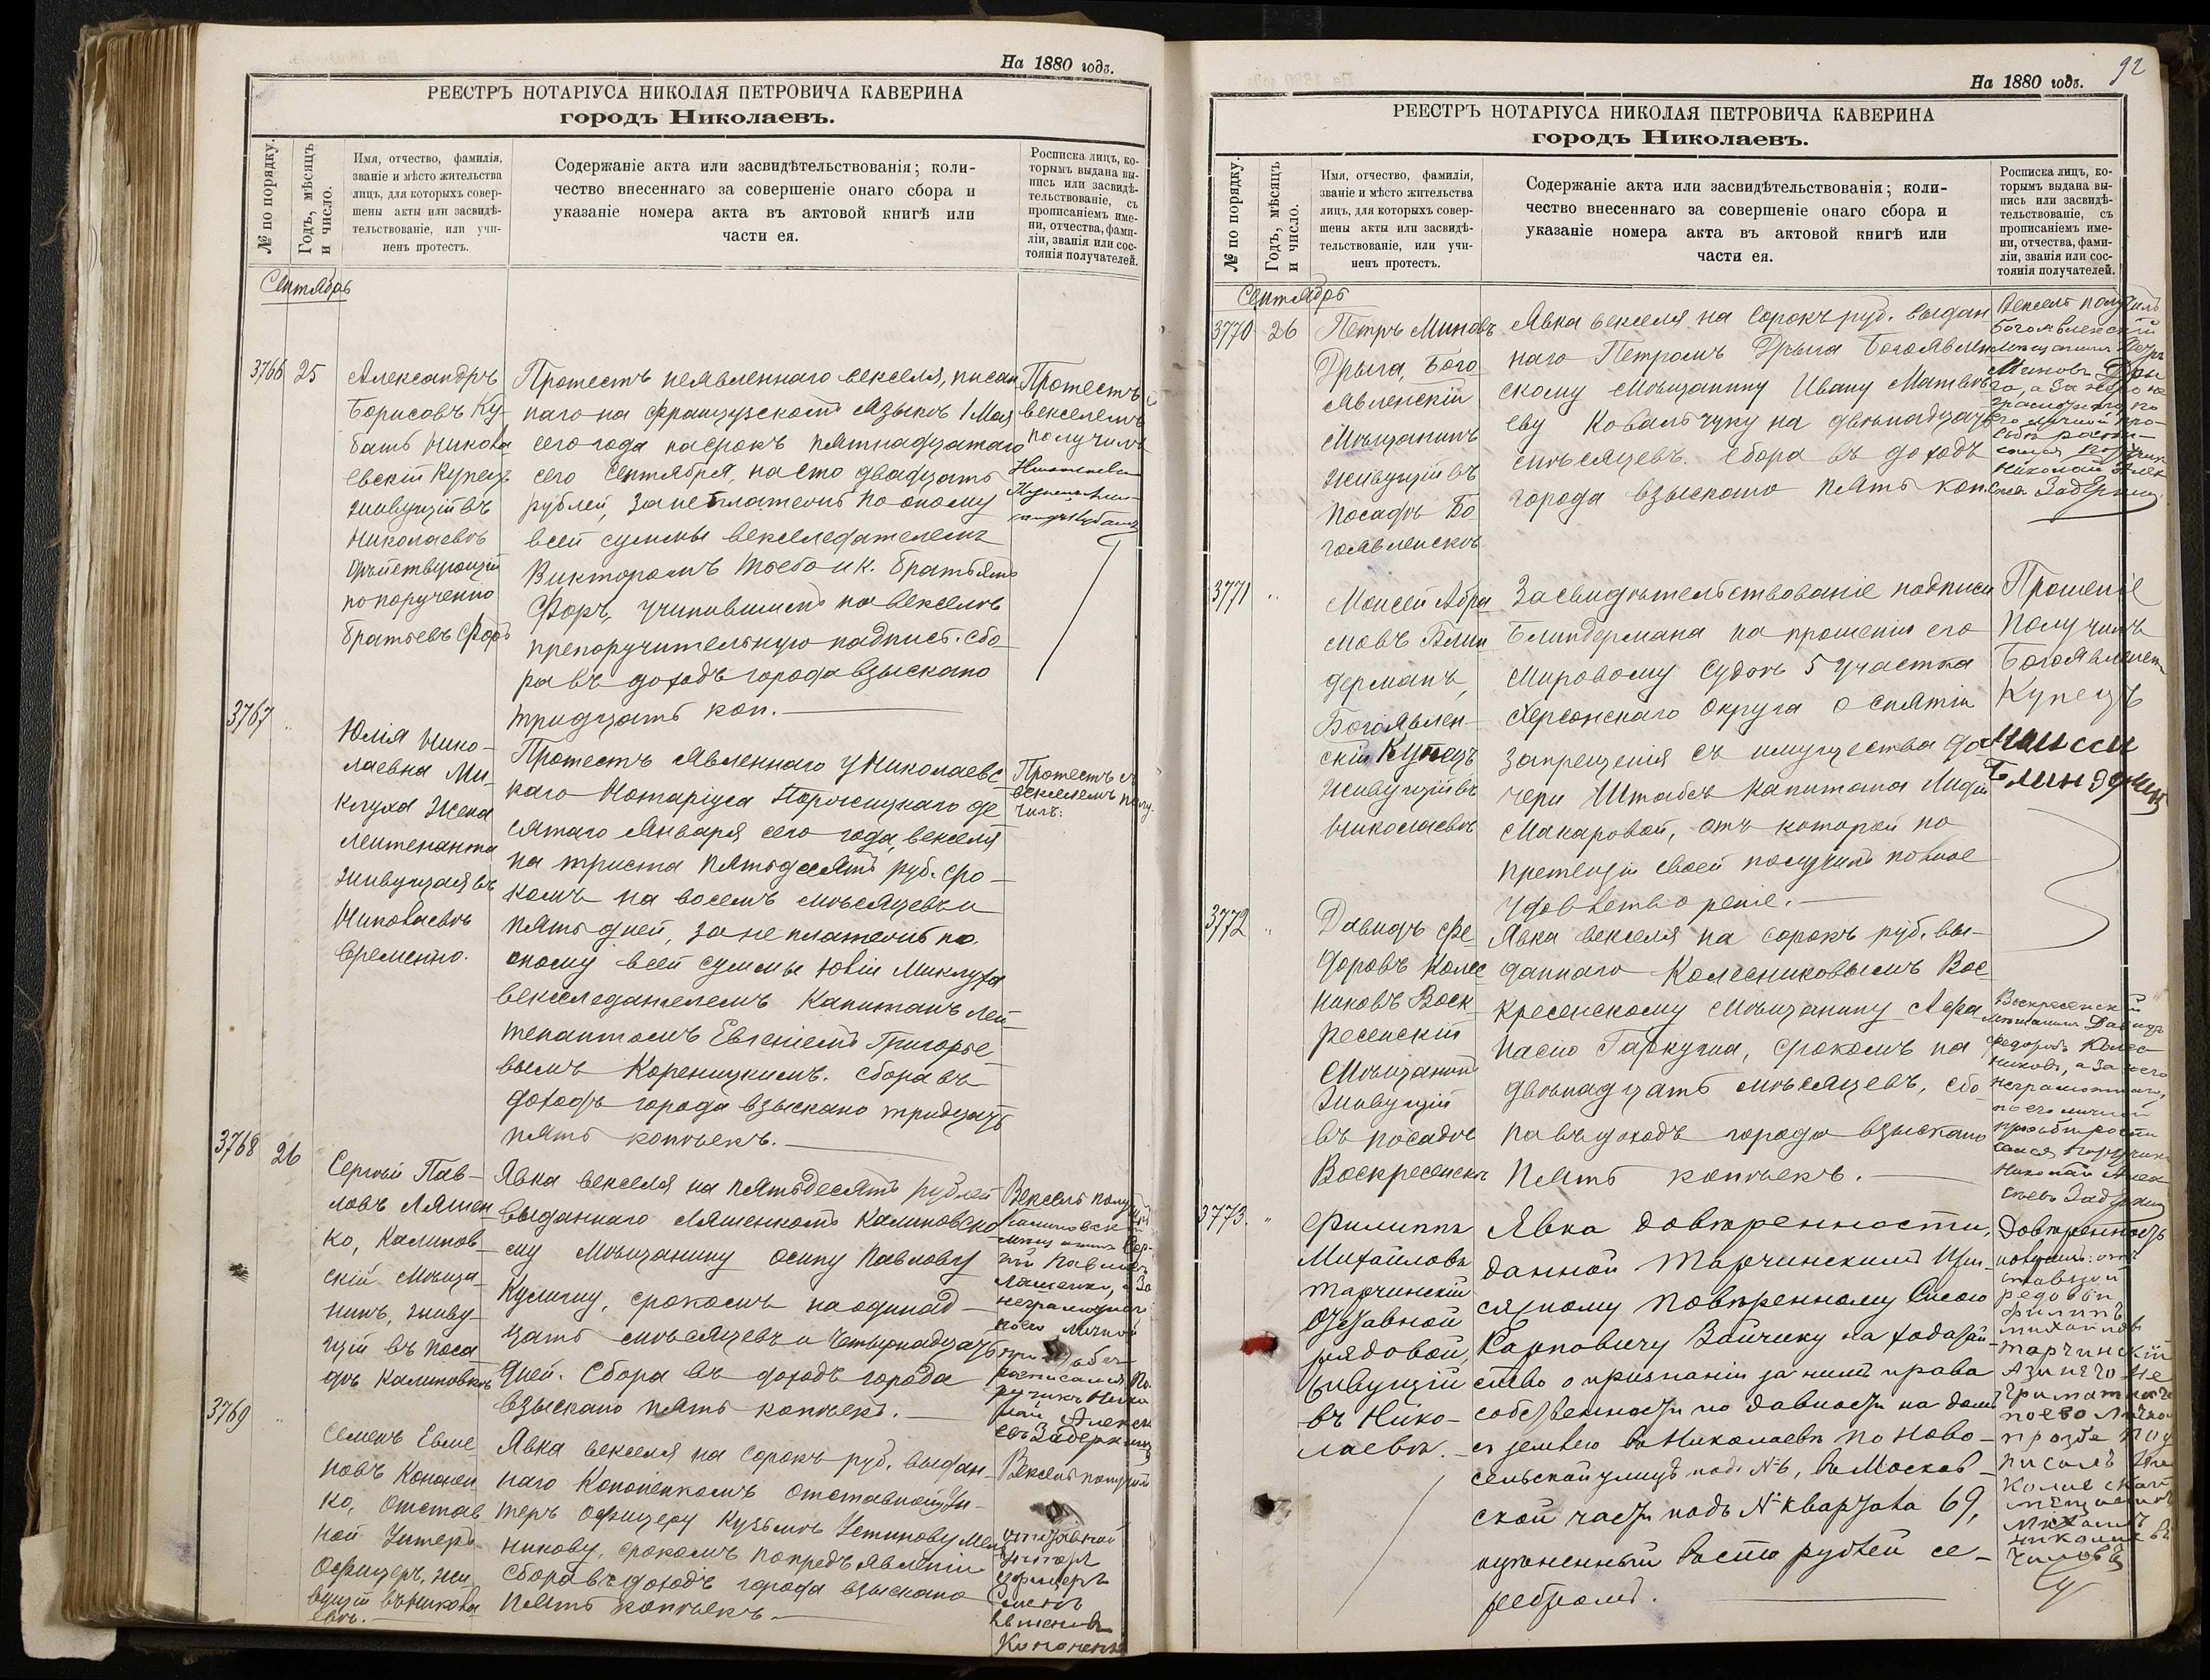 На 1880 годъ.
РЕЕСТРЪ НОТАРІУСА НИКОЛАЯ ПЕТРОВИЧА КАВЕРИНА
городъ Николаевъ.
№ по порядку.
Годъ, мѣсяцъ
и число.
Имя, отчество, фамилія,
званіе и мѣсто жительства
лицъ, для которыхъ совер-
шены акты или засвидѣ-
тельствованіе, или учи-
ненъ протестъ.
Содержаніе акта или засвидѣтельствованія; коли-
чество внесеннаго за совершеніе онаго сбора и
указаніе номера акта въ актовой книгѣ или
части ея.
Росписка лицъ, ко-
торымъ выдана вы-
пись или засвидѣ-
тельствованіе, съ
прописаніемъ име-
ни, отчества, фами-
ліи, званія или сос-
тоянія получателей.
Сентябрь
3766
25
Александръ
Борисовъ Ку-
батъ Никола
евскій Купецъ
живущій въ
Николаевѣ
дѣйствующій
по порученію
братьевъ Форъ
Протестъ неявленнаго векселя, писан
наго на французскомъ языкѣ 1 Мая
сего года на срокъ пятнадцатаго
сего Сентября, на сто двадцать
рублей, за неплатежъ по оному
всей суммы векселедателемъ
Викторомъ и К. братьямъ
Форъ, учинившимъ на векселѣ
препоручительную надпись. Сбо
ра въ доходъ города взыскано
тридцать коп.
Протестъ съ
векселемъ
получилъ
3767
Юлія Нико-
лаевна Ми-
клуха Жена
лейтенанта
живущая въ
Николаевѣ
временно.
Протестъ явленнаго у Николаевс
каго Нотаріуса де
сятаго Января сего года, векселя
на триста пятьдесятъ руб. сро-
комъ на восемь мѣсяцевъ и
пять дней, за неплатежъ по
оному всей суммы Юліи Миклуха
векселедателемъ Капитанъ Лей-
тенантомъ Евгеніемъ Григорье
вымъ Кореницкимъ. Сбора въ
доходъ города взыскано тридцать
пять копѣекъ.
Протестъ съ
векселемъ полу
чилъ:
3768
26
Сергѣй Пав-
ловъ Ляшен
ко, Калинов-
скій мѣща-
нинъ, живу-
щій въ поса
дѣ Калиновкѣ
Явка векселя на пятьдесятъ рублей
выданнаго Ляшенкомъ Калиновско-
му мѣщанину Осипу Павлову
срокомъ на одинад-
цать мѣсяцевъ и четырнадцать
дней. Сбора въ доходъ города
взыскано пять копѣекъ.
Вексель получилъ
Калиновскій
мѣщанинъ Сер-
гѣй Павловъ
Ляшенко, а за
неграмотнаго
по его личной
просьбѣ
росписался По
ручикъ Нико
лай Алексѣ
евъ Задеркинъ
3769
Семенъ Евме
новъ Кононен
ко, отстав
ной Унтеръ
Офицеръ, жи
вущій въ Никола
евѣ.
Явка векселя на сорокъ руб. выдан
наго Кононенкомъ отставному Ун-
теръ Офицеру Кузьмѣ Устинову Мель
никову, срокомъ по предъявленіи
Сбора въ доходъ города взыскано
пять копѣекъ.
Вексель получилъ
отставной
Унтеръ
Офицеръ
Семенъ
Евменовъ
Кононенко
На 1880 годъ.
92
РЕЕСТРЪ НОТАРІУСА НИКОЛАЯ ПЕТРОВИЧА КАВЕРИНА
городъ Николаевъ.
№ по порядку.
Годъ, мѣсяцъ
и число.
Имя, отчество, фамилія,
званіе и мѣсто жительства
лицъ, для которыхъ совер-
шены акты или засвидѣ-
тельствованіе, или учи-
ненъ протестъ.
Содержаніе акта или засвидѣтельствованія; коли-
чество внесеннаго за совершеніе онаго сбора и
указаніе номера акта въ актовой книгѣ или
части ея.
Росписка лицъ, ко-
торымъ выдана вы-
пись или засвидѣ-
тельствованіе, съ
прописаніемъ име-
ни, отчества, фами-
ліи, званія или сос-
тоянія получателей.
Сентябрь
3770
26
Петръ Миновъ
Дрыга, Бого
явленскій
мѣщанинъ
живущій въ
посадѣ Бо
гоявленскѣ
Явка векселя на сорокъ руб. выдан
наго Петромъ Дрыга Богоявлен
скому мѣщанину Ивану Матвѣ
еву Ковальчуку на двѣнадцать
мѣсяцевъ. Сбора въ доходъ
города взыскано пять коп.
Вексель получилъ
Богоявленскій
мѣщанинъ Петръ
Миновъ Дры
га, а за него не
грамотнаго по
его личной про-
сьбѣ роспи-
сался Поручикъ
Николай Алек
сѣевъ Задеркинъ
3771
Моисей Абра
мовъ Блин
дерманъ,
Богоявлен-
скій Купецъ
живущій въ
Николаевѣ
Засвидѣтельствованіе подписи
Блиндермана на прошеніи его
Мировому Судьѣ 5 участка
Херсонскаго Округа о снятіи
запрещенія съ имущества до
чери Штабсъ Капитана Лидіи
Макаровой, отъ которой по
претензіи своей получилъ полное
удовлетвореніе.
Прошеніе
получилъ
Богоявленск
Купецъ
3772
Давидъ Фе
доровъ Колес
никовъ Воск
ресенскій
мѣщанинъ
живущій
въ посадѣ
Воскресенскѣ
Явка векселя на сорокъ руб. вы-
даннаго Колесниковымъ Вос
кресенскому мѣщанину Афа
насію срокомъ на
двѣнадцать мѣсяцевъ, сбо
ра въ доходъ города взыскано
пять копѣекъ.
Воскресенскій
мѣщанинъ Давидъ
Федоровъ Колес
никовъ, а за него
неграмотнаго,
по его личной
просьбѣ роспи
сался Поручикъ
Николай Алек
сѣевъ Задеркинъ
3773.
Филиппъ
Михайловъ
Тарчинскій
отставной
рядовой,
живущій
въ Нико-
лаевѣ.
Явка довѣренности,
данной Тарчинскимъ При-
сяжному повѣренному Сысою
Карповичу Зайчику на ходатай-
ство о признаніи за нимъ права
собственности по давности на домъ
съ землею въ Николаевѣ по Ново-
сельской улицѣ подъ №, въ Москов-
ской части подъ № квартала 69,
оцѣненный во сто рублей се-
ребромъ.
Довѣренность
получилъ: отъ
ставной
редовой
Филипъ
Михайловъ
Тарчинскій